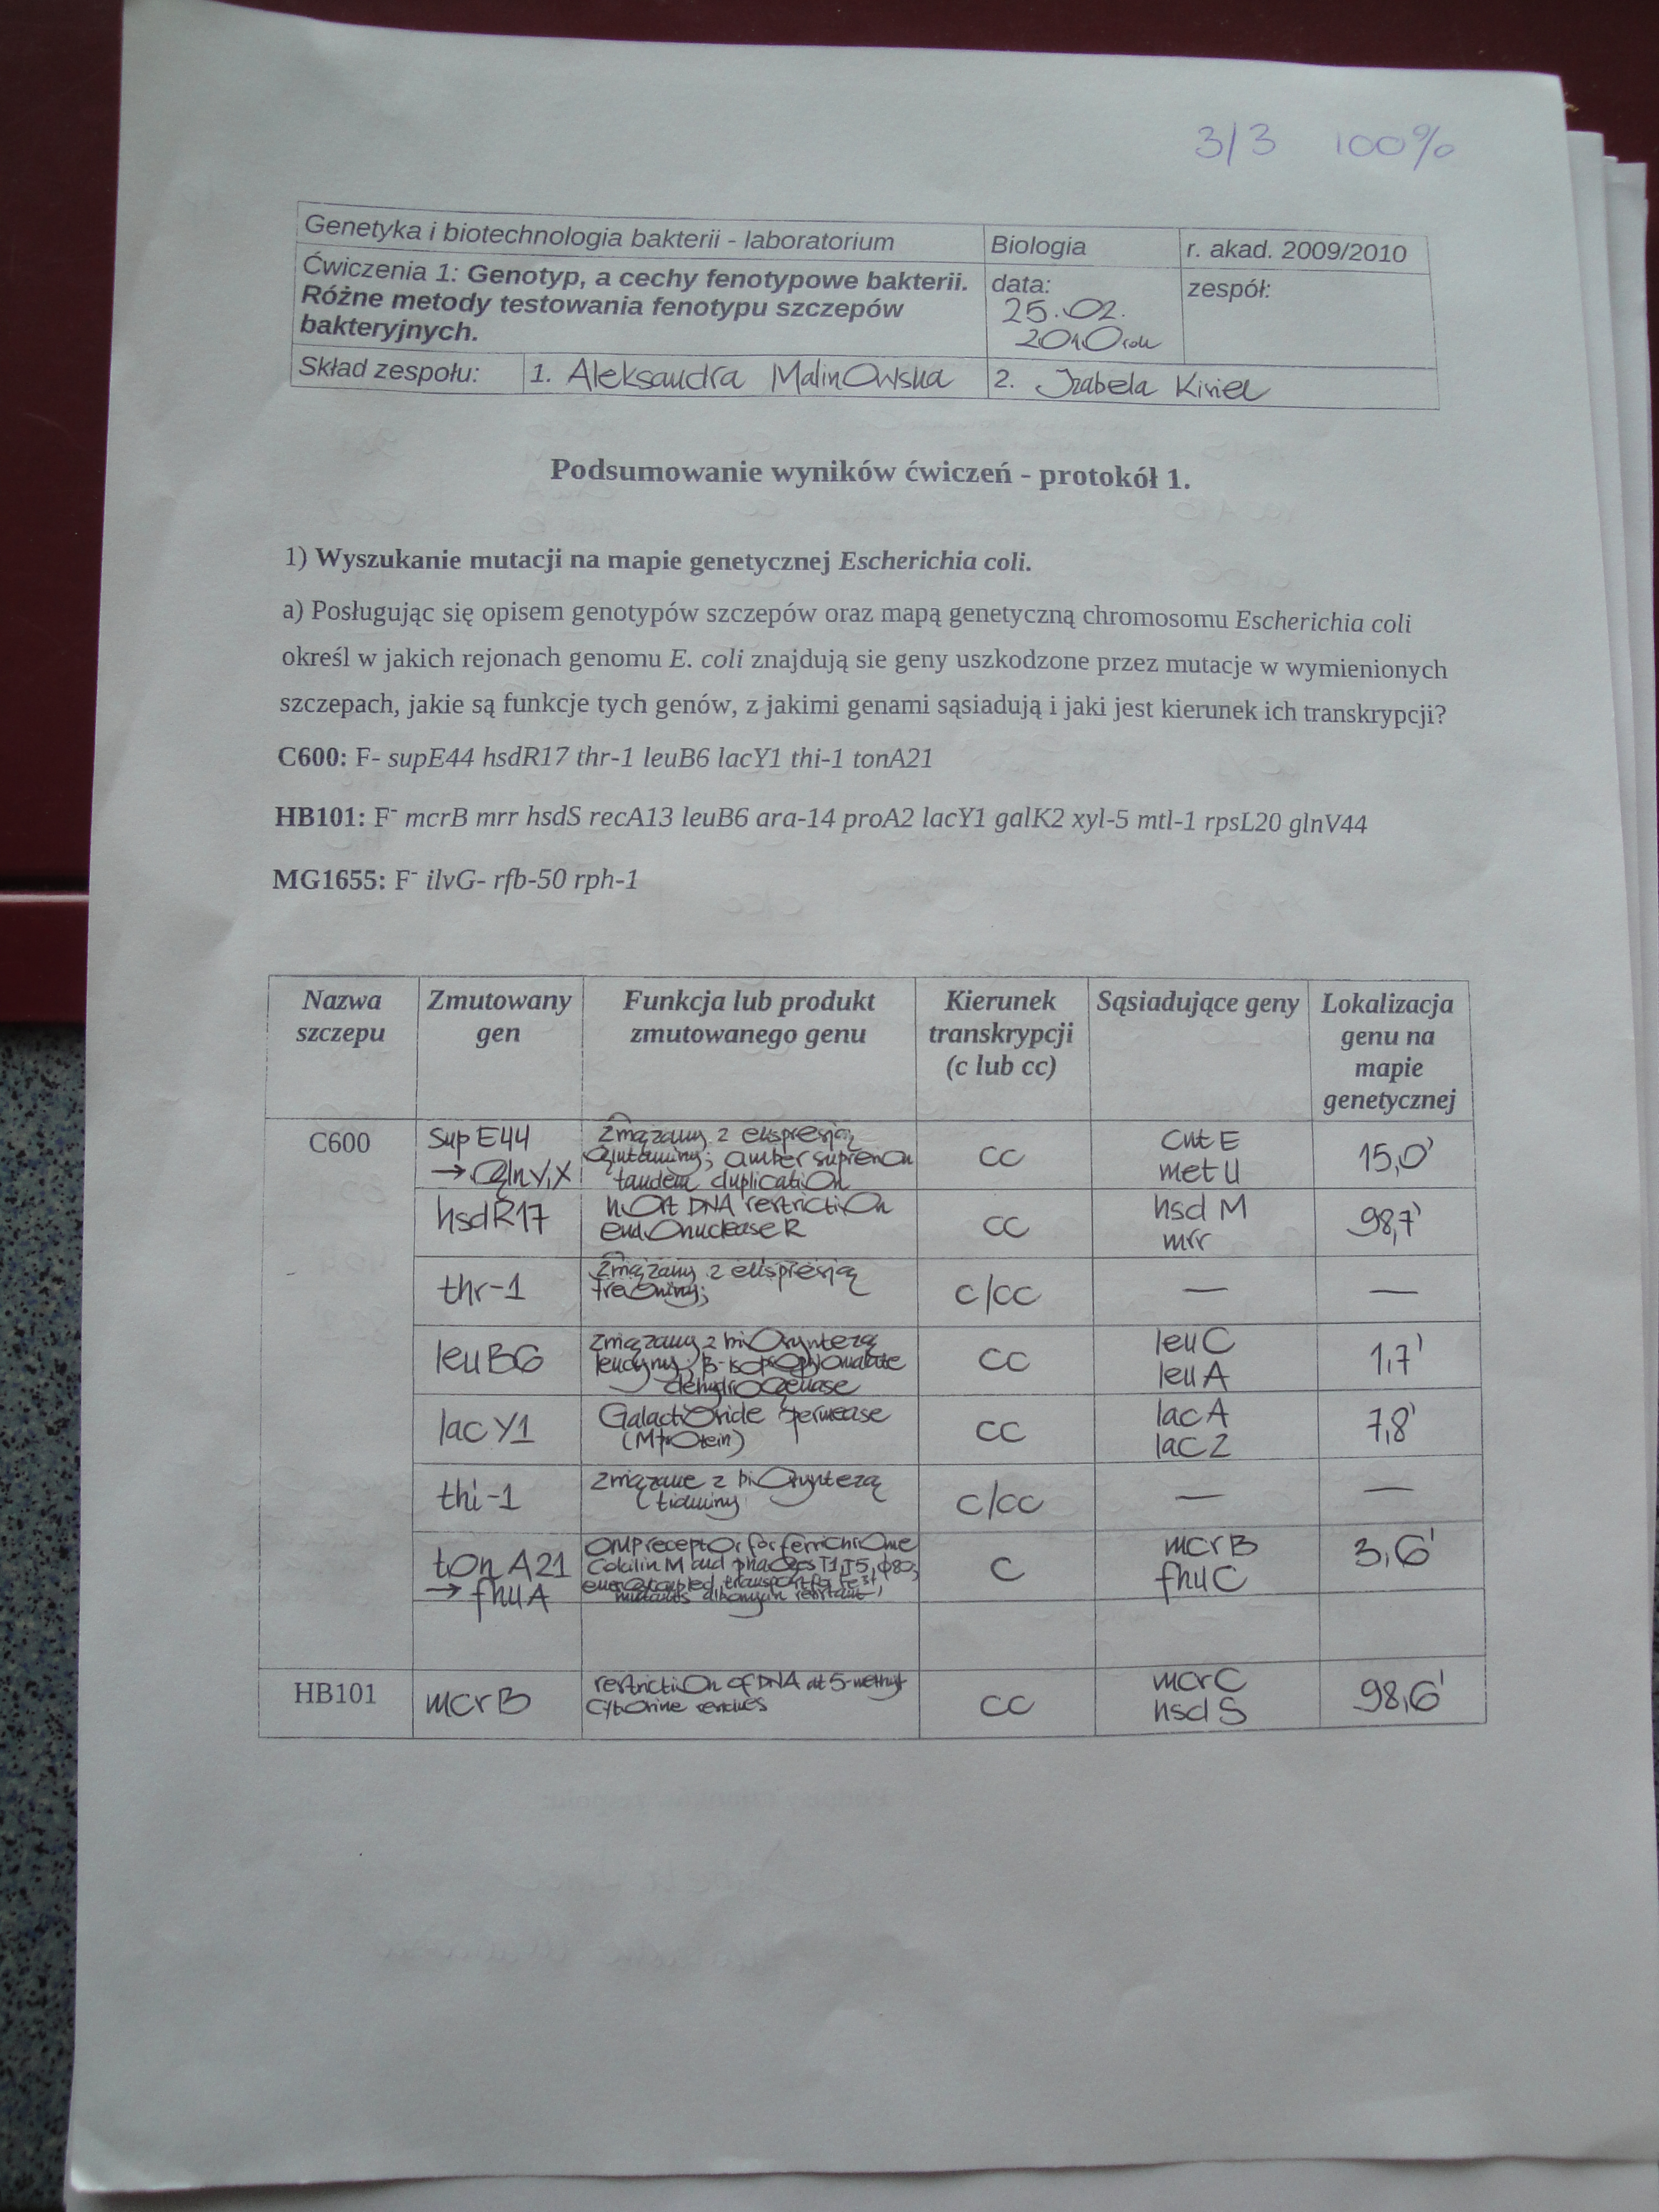 3/3 100%
Genetyka i biotechnologia bakterii - laboratorium
Biologia
r. akad. 2009/2010
Ćwiczenia 1: Genotyp, a cechy fenotypowe bakterii.
Różne metody testowania fenotypu szczepów
bakteryjnych.
data:
25.02.
2010
zespół:
Skład zespołu:
1. Aleksandra Malinowska
2. Izabela
Podsumowanie wyników ćwiczeń - protokół 1.
1) Wyszukanie mutacji na mapie genetycznej Escherichia coli.
a) Posługując się opisem genotypów szczepów oraz mapą genetyczną chromosomu Escherichia coli
określ w jakich rejonach genomu E. coli znajdują sie geny uszkodzone przez mutacje w wymienionych
szczepach, jakie są funkcje tych genów, z jakimi genami sąsiadują i jaki jest kierunek ich transkrypcji?
C600: F- supE44 hsdR17 thr-1 leuB6 lacY1 thi-1 tonA21
HB101: F- mcrB mrr hsdS recA13 leuB6 ara-14 proA2 lacY1 galK2 xyl-5 mtl-1 rpsL20 glnV44
MG1655: F- ilvG- rfb-50 rph-1
Nazwa
szczepu
Zmutowany
gen
Funkcja lub produkt
zmutowanego genu
Kierunek
transkrypcji
(c lub cc)
Sąsiadujące geny
Lokalizacja
genu na
mapie
genetycznej
C600
Sup E44
→ glnV,X
Związany z ekspresją
glutaminy; amber
tandem duplication
cc
metU
15,0'
hsdR17
host DNA restriction
endonuclease R
cc
hsd M
mrr
98,7'
thr-1
Związany z ekspresją
treoniny;
c/cc
—
—
leuB6
Związany z biosyntezą
leucyny; β-isopropylomalate
dehydrogenase
cc
leuC
leuA
1,7'
lac Y1
Galactoside permease
(M protein)
cc
lac A
lac Z
7,8'
thi-1
związane z biosyntezą
tiaminy
c/cc
—
—
tonA21
→ fhuA
OMP receptor for ferrichrome
Colicin M and phages T1,T5,φ80;
energy coupled transport Fe3+,
mutants resistant
c
mcrB
fhuC
3,6'
HB101
mcrB
restriction of DNA at 5-methyl
cytosine residues
cc
mcrC
hsd S
98,6'